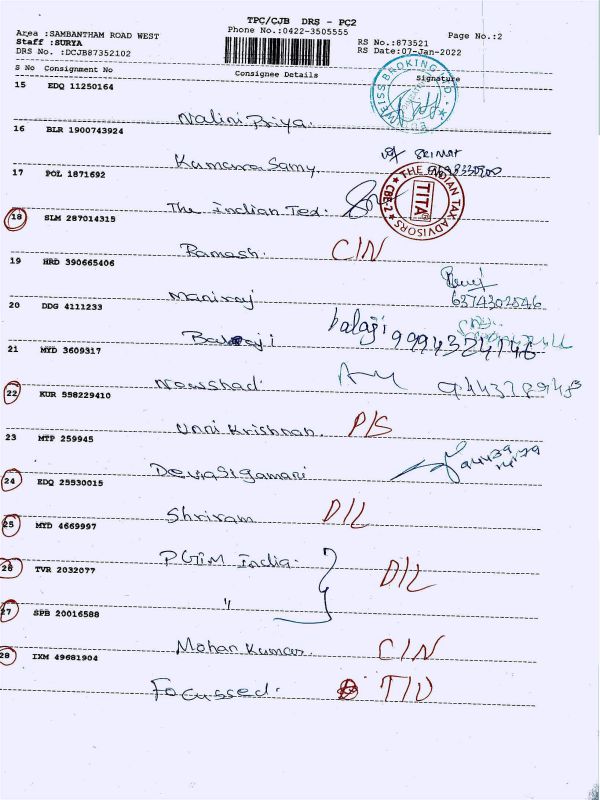 TPC/CJB DRS - PC2
Area :SAMBANTHAM ROAD WEST
Phone No.:0422-3505555
Page No.:2
Staff :SURYA
RS No.:873521
DRS No. :DCJB87352102
RS Date:07-Jan-2022
S No Consignment No
Consignee Details
Signature
15 EDQ 11250164
Nalini Priya.
16 BLR 1900743924
Kumara Samy.
17 POL 1871692
THE INDIAN TAX ADVISORS
TITA
CBE-2
The Indian Tex.
18 SLM 287014315
Ramesh. C/N
19 HRD 390665406
Maniraj
6374302546
20 DDG 4111233
Balaji balaji 9994324146
21 MYD 3609317
Nowshad.
22 KUR 558229410
Unni Krishnan. P/S
23 MTP 259945
Devasigamani
24 EDQ 25530015
Shriram D/L
25 MYD 4669997
PGIM India.
26 TVR 2032077
D/L
"
27 SPB 20016588
Mohan Kumar C/N
28 IXM 49681904
Focussed.